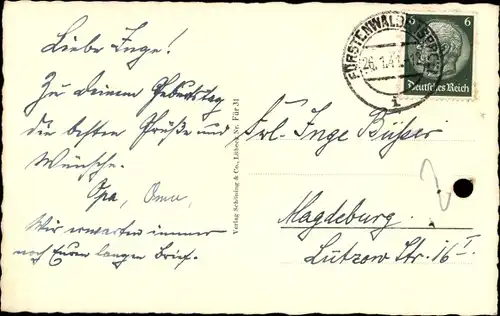 Liebe Inge!
Zu deinem Geburtstag
die besten Grüße und
Wünsche.
Opa, Oma,
Wir erwarten immer
noch Euren langen Brief.
Verlag Schöning & Co., Lübeck Nr. Für 31
FÜRSTENWALDE (SPREE)
26.1.41
i
6 6
Deutsches Reich
Frl. Inge
Magdeburg.
Lützow Str. 16 I